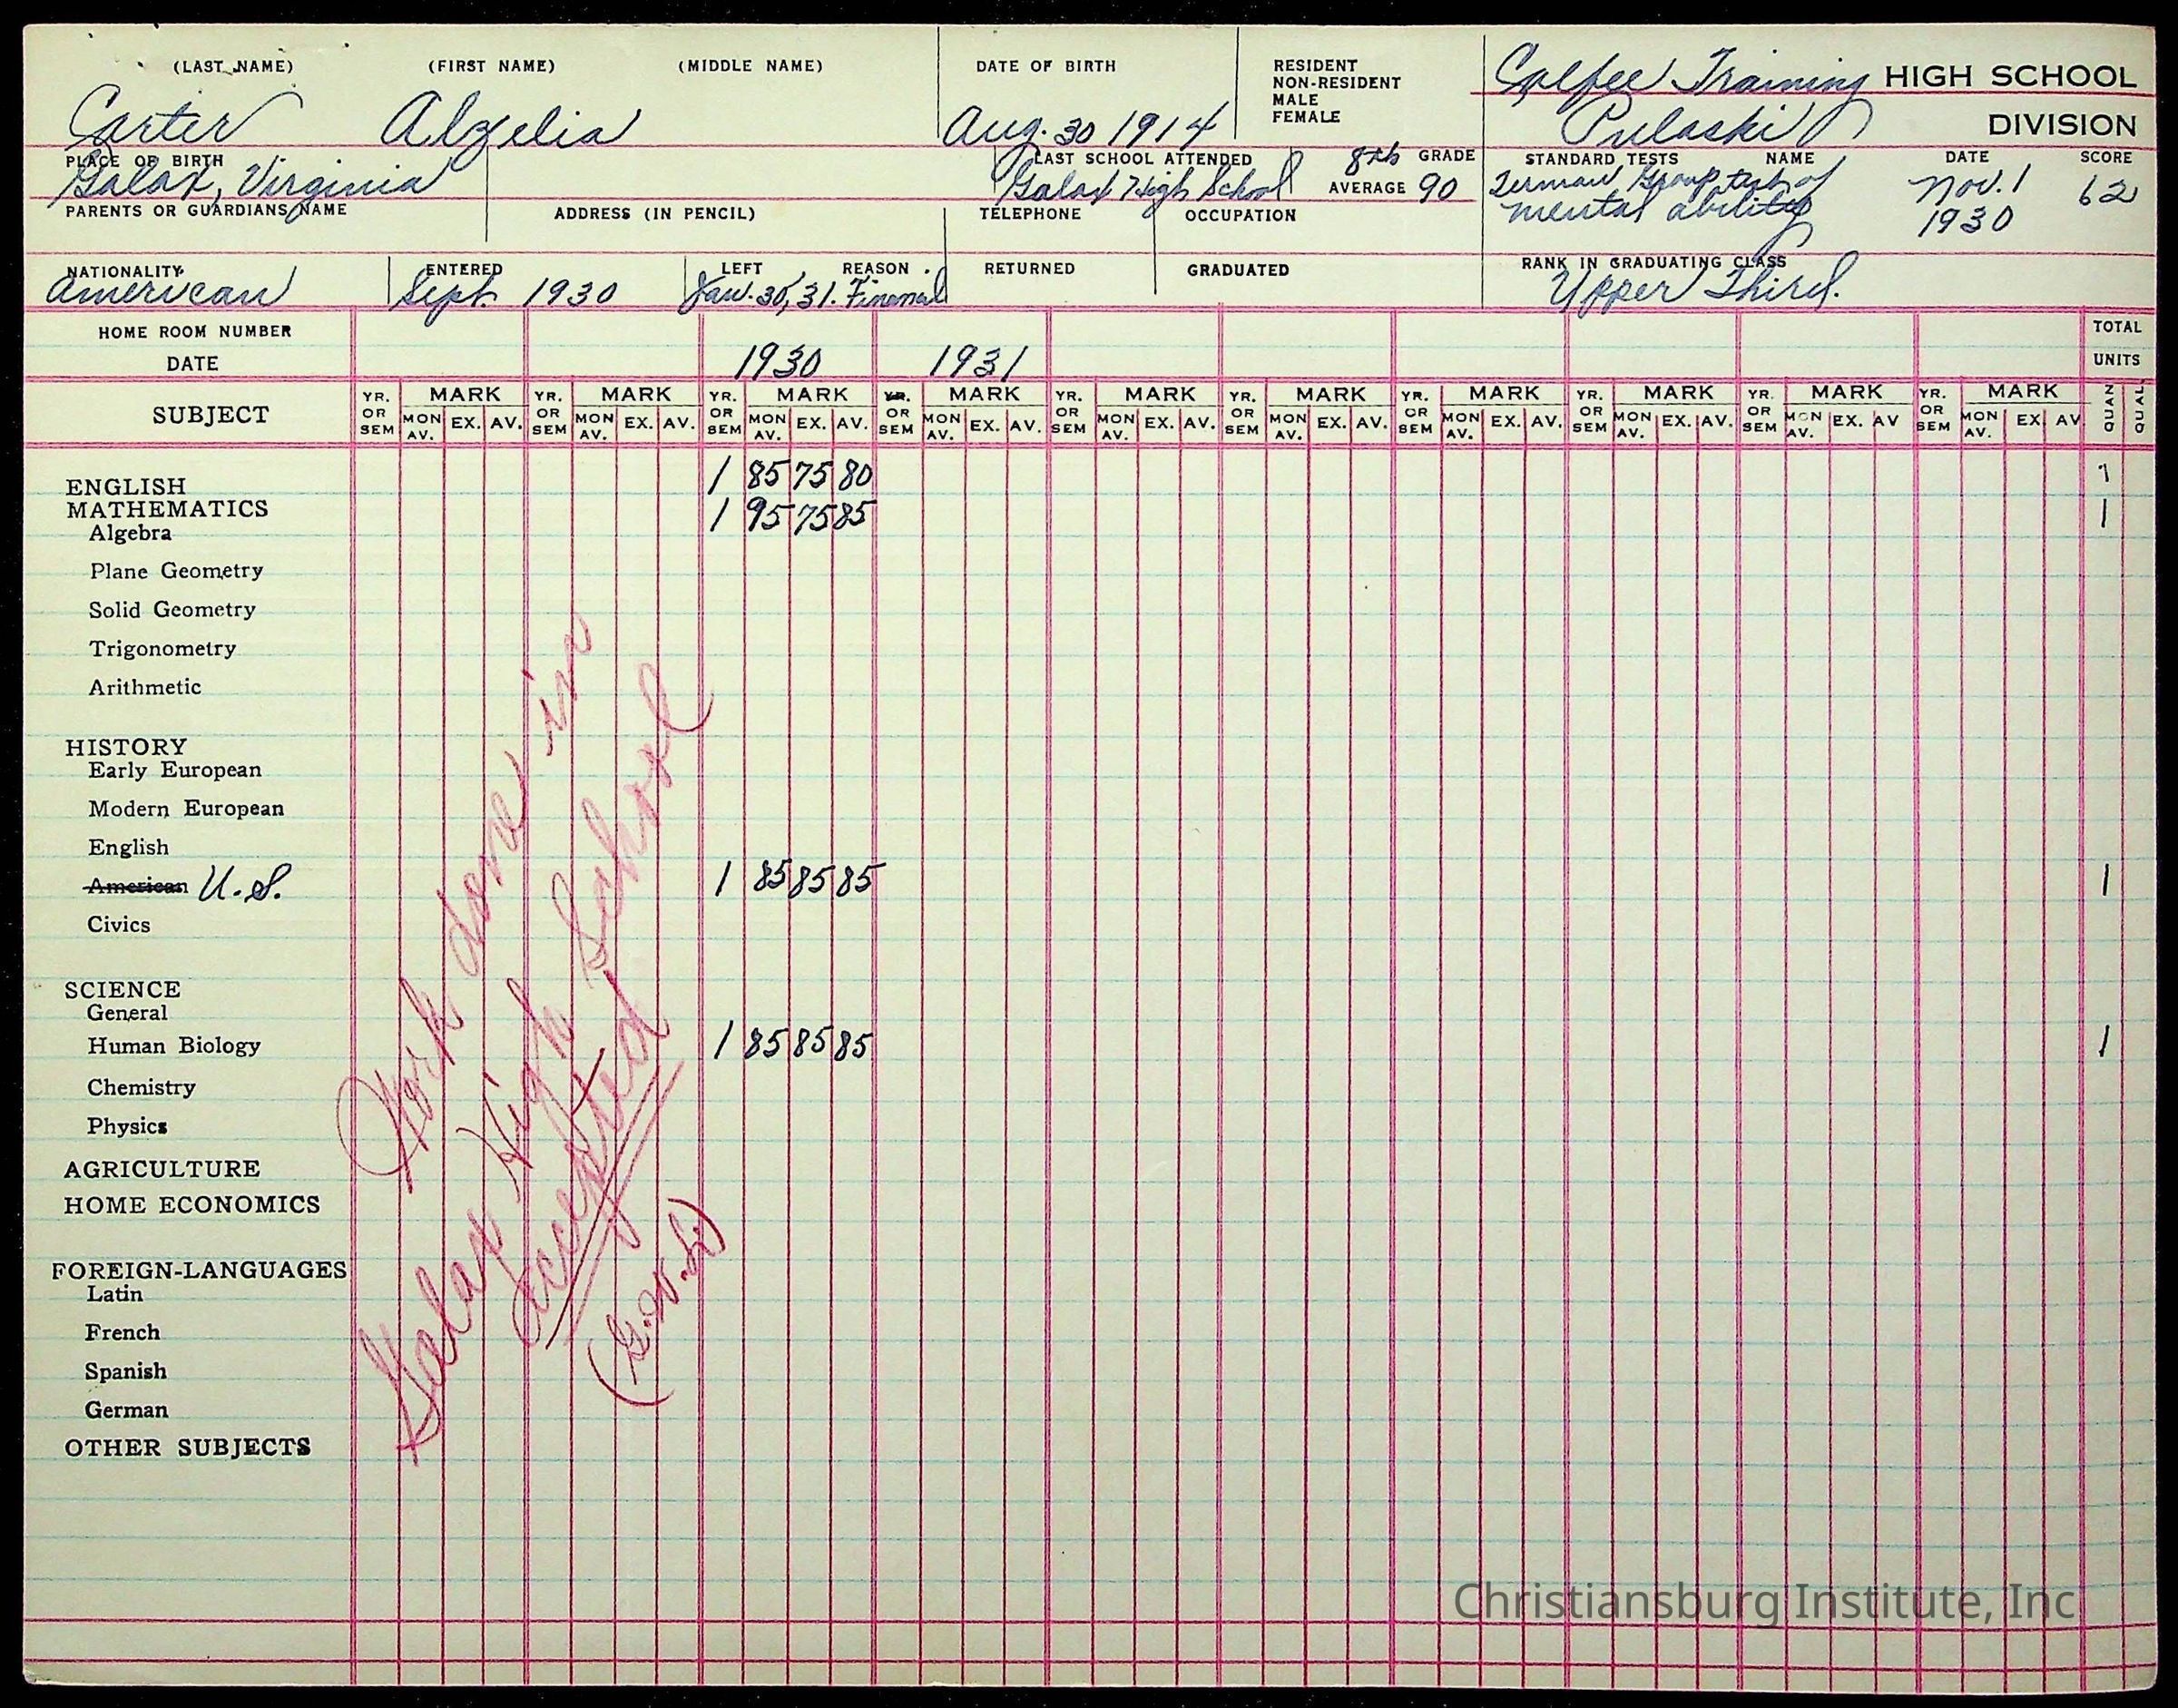 (LAST NAME) (FIRST NAME) (MIDDLE NAME) DATE OF BIRTH RESIDENT
NON-RESIDENT
MALE
FEMALE
Calfee Training HIGH SCHOOL
Carter Algelia Aug. 30 1914
Pulaski DIVISION
PLACE OF BIRTH LAST SCHOOL ATTENDED 8th GRADE STANDARD TESTS NAME DATE SCORE
Galax, Virginia Galax High School AVERAGE 90 Terman Group test of Nov. 1 62
mental ability 1930
PARENTS OR GUARDIANS NAME ADDRESS (IN PENCIL) TELEPHONE OCCUPATION
NATIONALITY ENTERED LEFT REASON RETURNED GRADUATED RANK IN GRADUATING CLASS
American Sept. 1930 Jan. 30, 31. Upper Third.
HOME ROOM NUMBER TOTAL
DATE 1930 1931 UNITS
SUBJECT
YR. OR SEM MARK MON AV. EX. AV. YR. OR SEM MARK MON AV. EX. AV. YR. OR SEM MARK MON AV. EX. AV. YR. OR SEM MARK MON AV. EX. AV. YR. OR SEM MARK MON AV. EX. AV. YR. OR SEM MARK MON AV. EX. AV. YR. OR SEM MARK MON AV. EX. AV. YR. OR SEM MARK MON AV. EX. AV. YR. OR SEM MARK MON AV. EX. AV YR. OR SEM MARK MON AV. EX. AV. QUAN QUAL.
ENGLISH 1 85 75 80 1
MATHEMATICS 1 95 75 85 1
Algebra
Plane Geometry
Solid Geometry
Trigonometry
Arithmetic
HISTORY
Early European
Modern European
English
American U.S. 1 85 85 85 1
Civics
SCIENCE
General
Human Biology 1 85 85 85 1
Chemistry
Physics
AGRICULTURE
HOME ECONOMICS
FOREIGN-LANGUAGES
Latin
French
Spanish
German
OTHER SUBJECTS
Work done in
Galax High School
Accepted
Christiansburg Institute, Inc